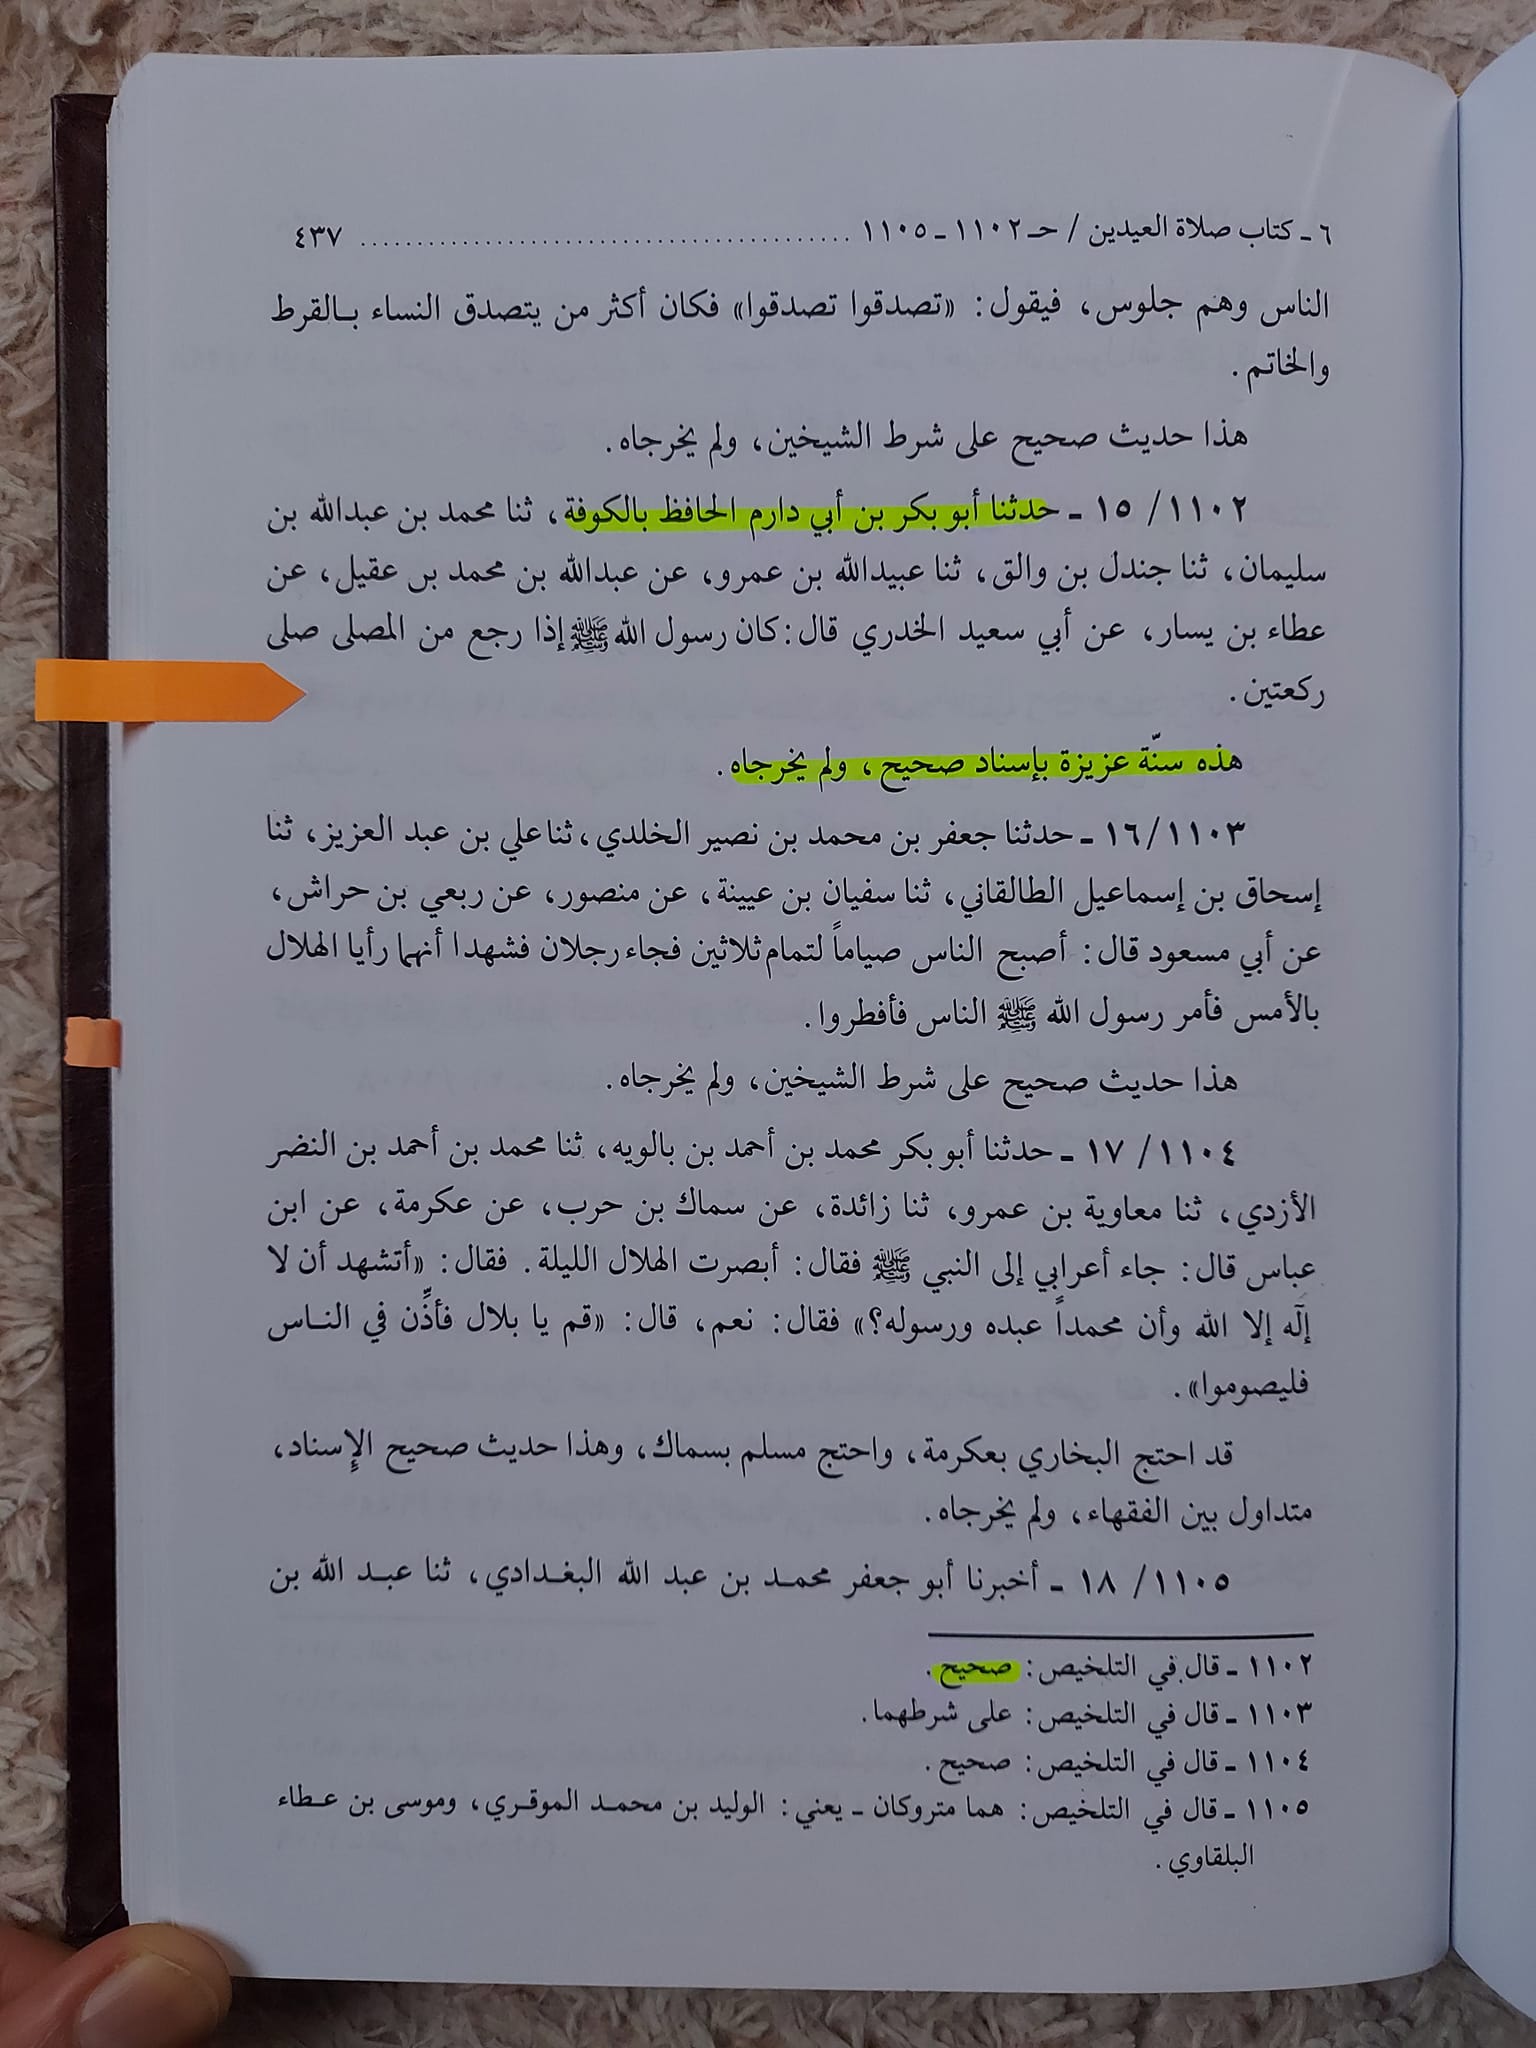 ٦ ـ كتاب صلاة العيدين / حـ ١١٠٢ ـ ١١٠٥ ........................................ ٤٣٧
الناس وهم جلوس، فيقول: «تصدقوا تصدقوا» فكان أكثر من يتصدق النساء بـالقرط
والخاتم.
هذا حديث صحيح على شرط الشيخين، ولم يخرجاه.
١١٠٢/ ١٥ ـ حدثنا أبو بكر بن أبي دارم الحافظ بالكوفة، ثنا محمد بن عبدالله بن
سليمان، ثنا جندل بن والق، ثنا عبيدالله بن عمرو، عن عبدالله بن محمد بن عقيل، عن
عطاء بن يسار، عن أبي سعيد الخدري قال: كان رسول الله ﷺ إذا رجع من المصلى صلى
ركعتين.
هذه سنّة عزيزة بإسناد صحيح، ولم يخرجاه.
١١٠٣/ ١٦ ـ حدثنا جعفر بن محمد بن نصير الخلدي، ثنا علي بن عبد العزيز، ثنا
إسحاق بن إسماعيل الطالقاني، ثنا سفيان بن عيينة، عن منصور، عن ربعي بن حراش،
عن أبي مسعود قال: أصبح الناس صياماً لتمام ثلاثين فجاء رجلان فشهدا أنهما رأيا الهلال
بالأمس فأمر رسول الله ﷺ الناس فأفطروا.
هذا حديث صحيح على شرط الشيخين، ولم يخرجاه.
١١٠٤/ ١٧ ـ حدثنا أبو بكر محمد بن أحمد بن بالويه، ثنا محمد بن أحمد بن النضر
الأزدي، ثنا معاوية بن عمرو، ثنا زائدة، عن سماك بن حرب، عن عكرمة، عن ابن
عباس قال: جاء أعرابي إلى النبي ﷺ فقال: أبصرت الهلال الليلة. فقال: «أتشهد أن لا
إلٰه إلا الله وأن محمداً عبده ورسوله؟» فقال: نعم، قال: «قم يا بلال فأذِّن في النـاس
فليصوموا».
قد احتج البخاري بعكرمة، واحتج مسلم بسماك، وهذا حديث صحيح الإِسناد،
متداول بين الفقهاء، ولم يخرجاه.
١١٠٥/ ١٨ ـ أخبرنا أبو جعفر محمـد بن عبد الله البغـدادي، ثنا عبـد الله بن
١١٠٢ ـ قال في التلخيص: صحيح.
١١٠٣ ـ قال في التلخيص: على شرطهما.
١١٠٤ ـ قال في التلخيص: صحيح.
١١٠٥ ـ قال في التلخيص: هما متروكان ـ يعني: الوليد بن محمـد الموقـري، وموسى بن عـطاء
البلقاوي.